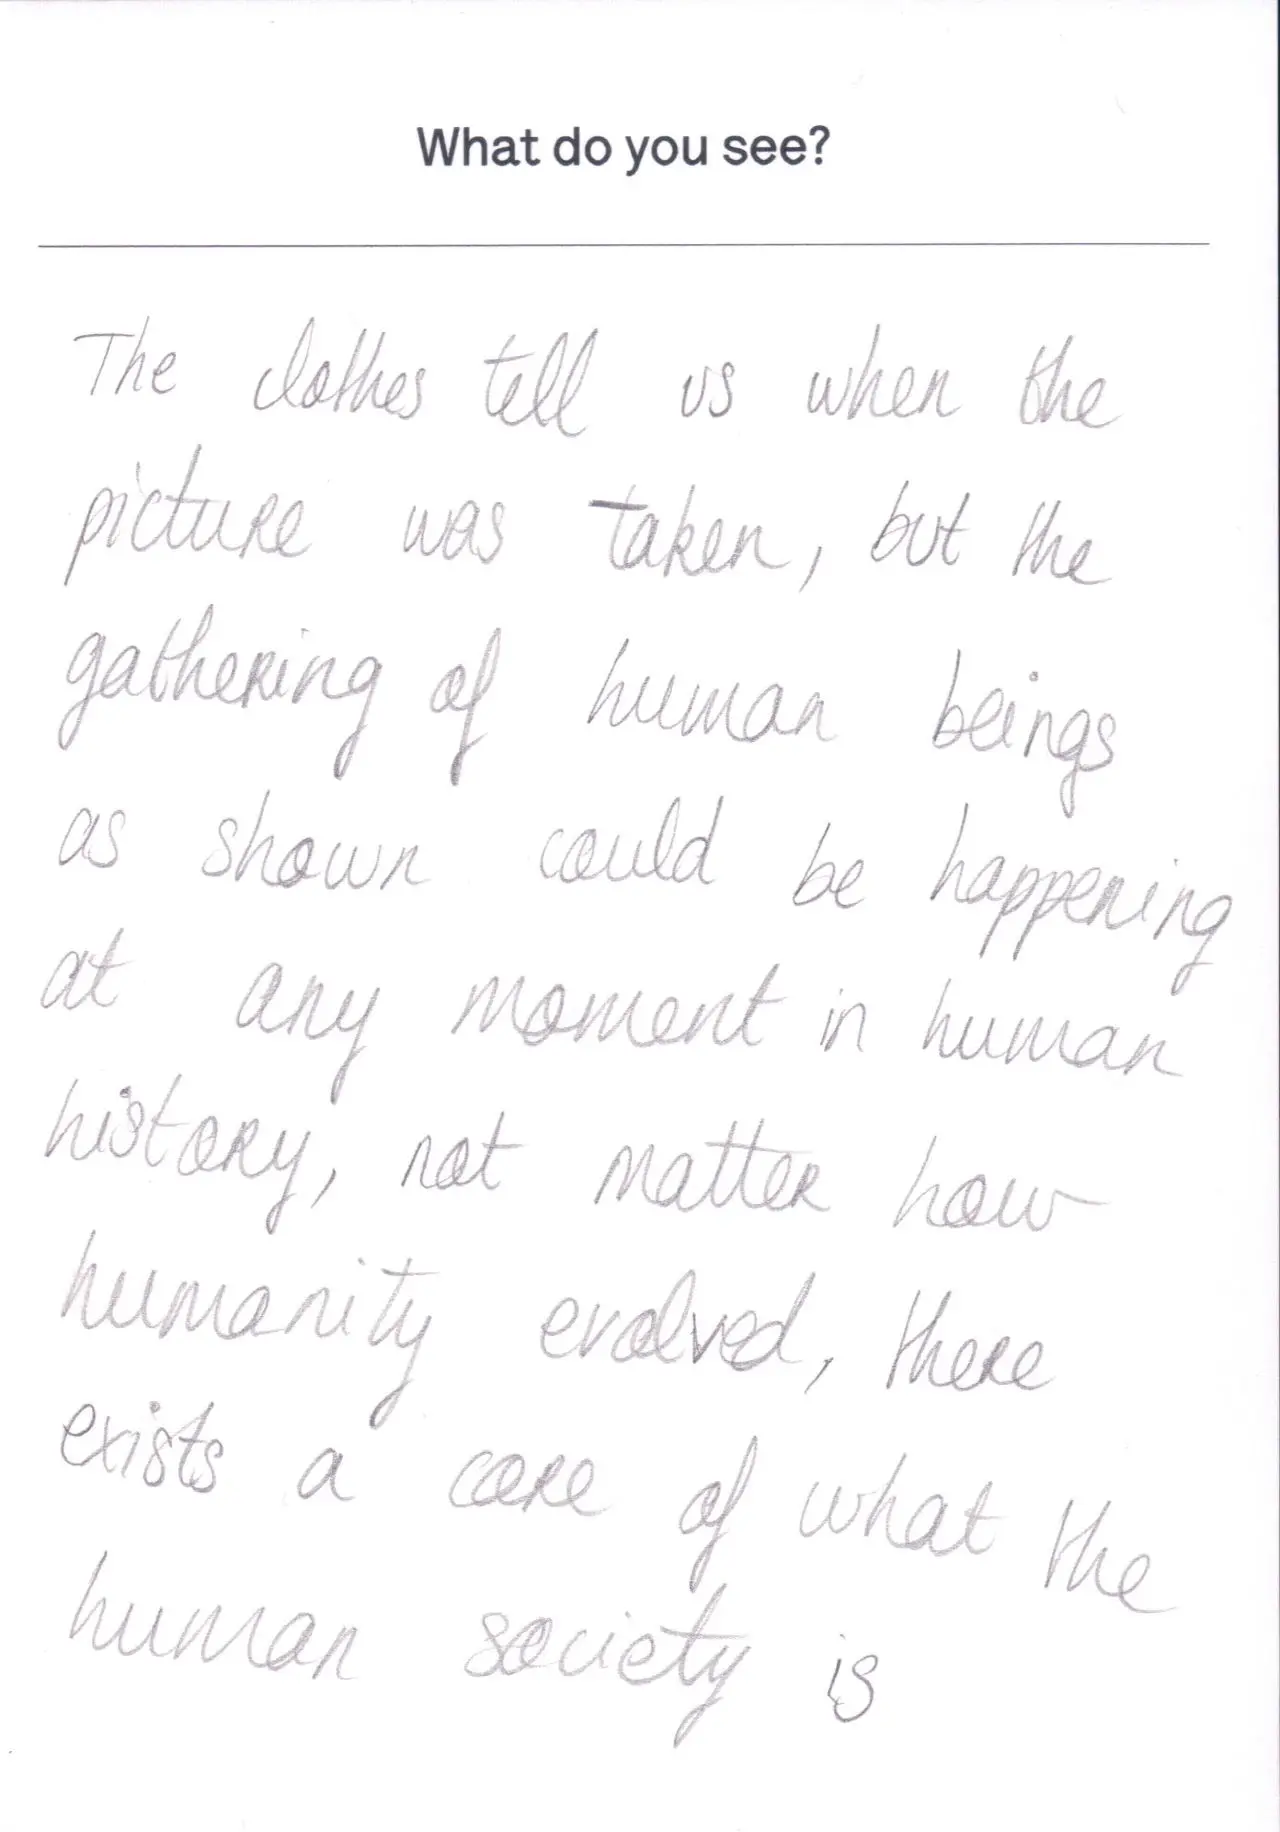 What do you see?
The clothes tell us when the
picture was taken, but the
gathering of human beings
as shown could be happening
at any moment in human
history, not matter how
humanity evolved, there
exists a core of what the
human society is